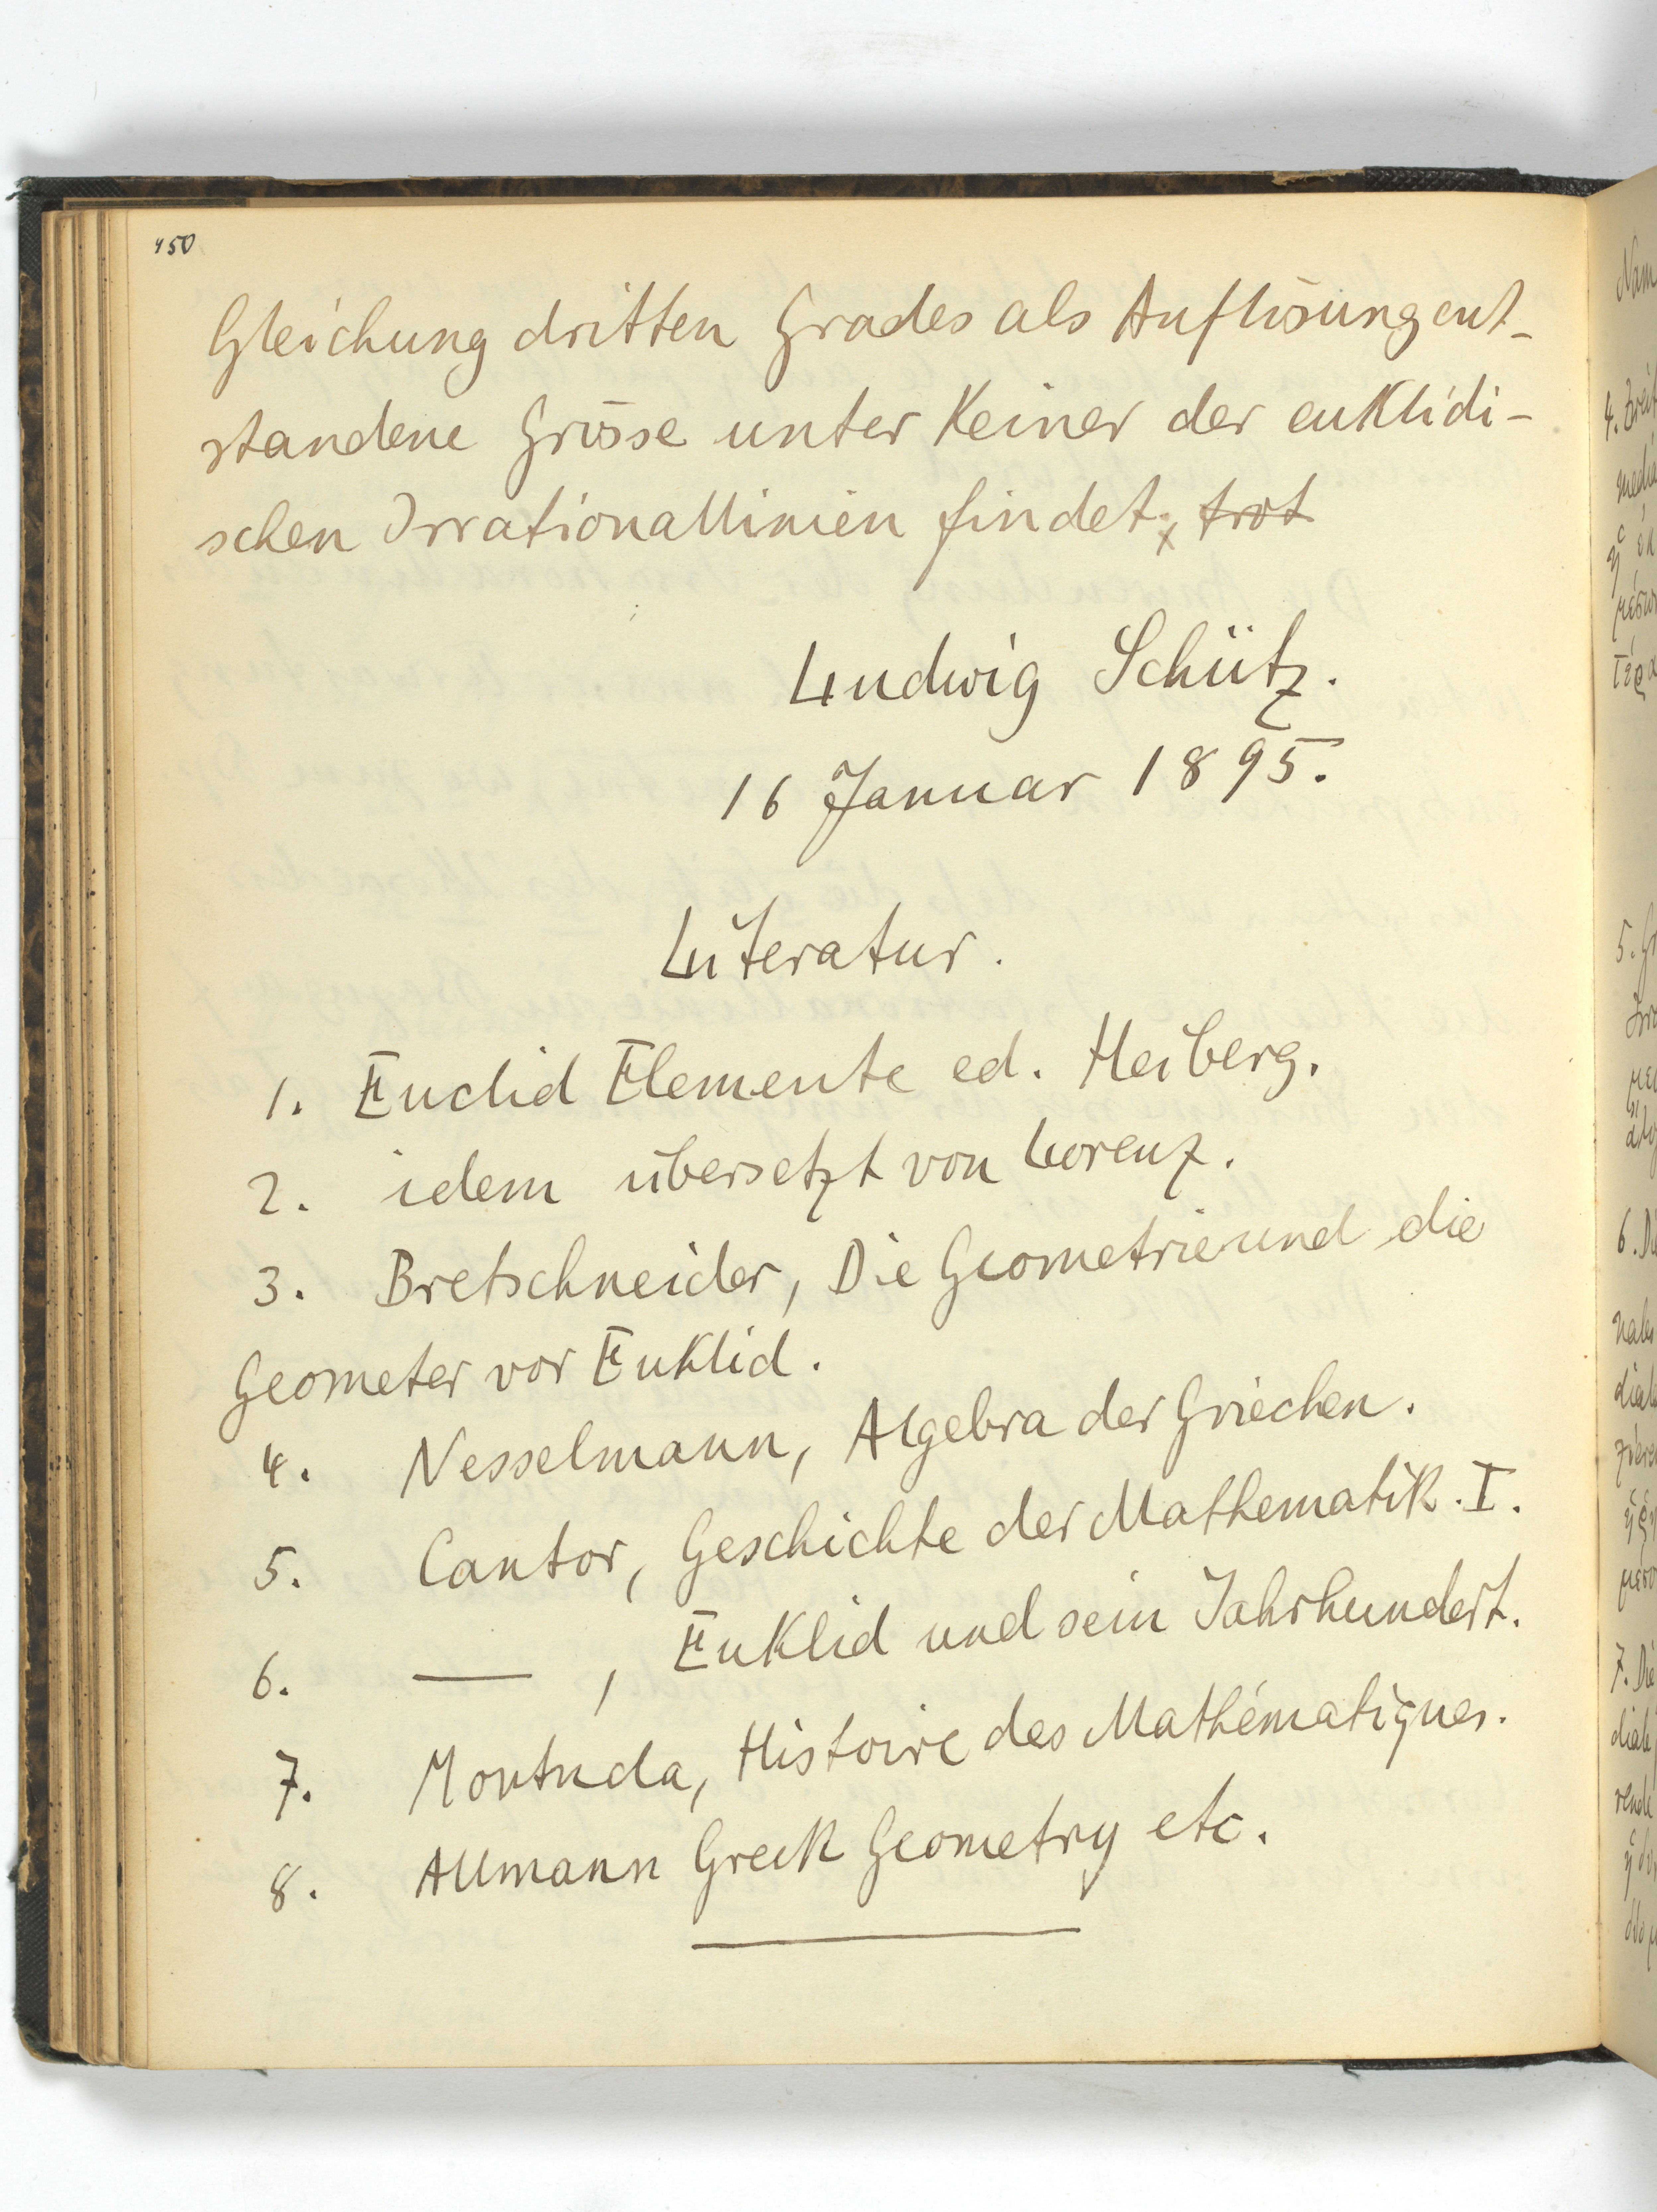 450
Gleichung dritten Grades als Auflösung ent-
standene Grösse unter Keiner der euklidi-
schen Irrationallinien findet. trot
Ludwig Schütz.
16 Januar 1895.
Literatur.
1. Euclid Elemente ed. Heiberg.
2. idem übersetzt von Lorenz.
3. Bretschneider, Die Geometrie und die
Geometer vor Euklid.
4. Nesselmann, Algebra der Griechen.
5. Cantor, Geschichte der Mathematik. I.
6. —, Euklid und sein Jahrhundert.
7. Montucla, Histoire des Mathématiques.
8. Allmann Greek Geometry etc.